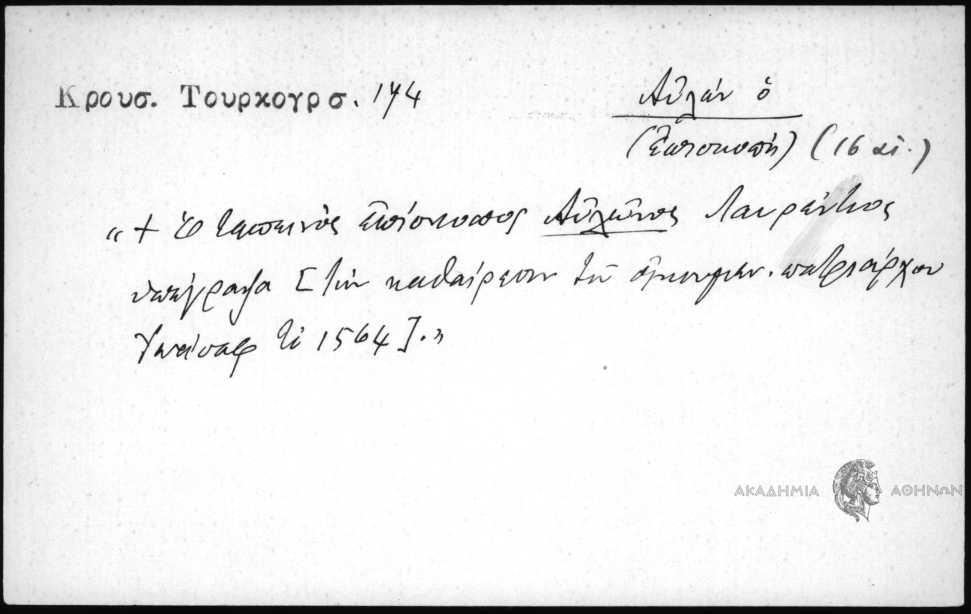 Κρουσ. Τουρκογρσ. 174
Αὐλών ὁ
(Ἐπισκοπή) (16 αἰ.)
« + Ὁ ταπεινὸς ἐπίσκοπος Αὐλῶνος Λαυρέντιος
ὑπέγραψα [τὴν καθαίρεσιν τοῦ οἰκουμεν. πατριάρχου
Ἰωάσαφ τῷ 1564].»
ΑΚΑΔΗΜΙΑ ΑΘΗΝΩΝ